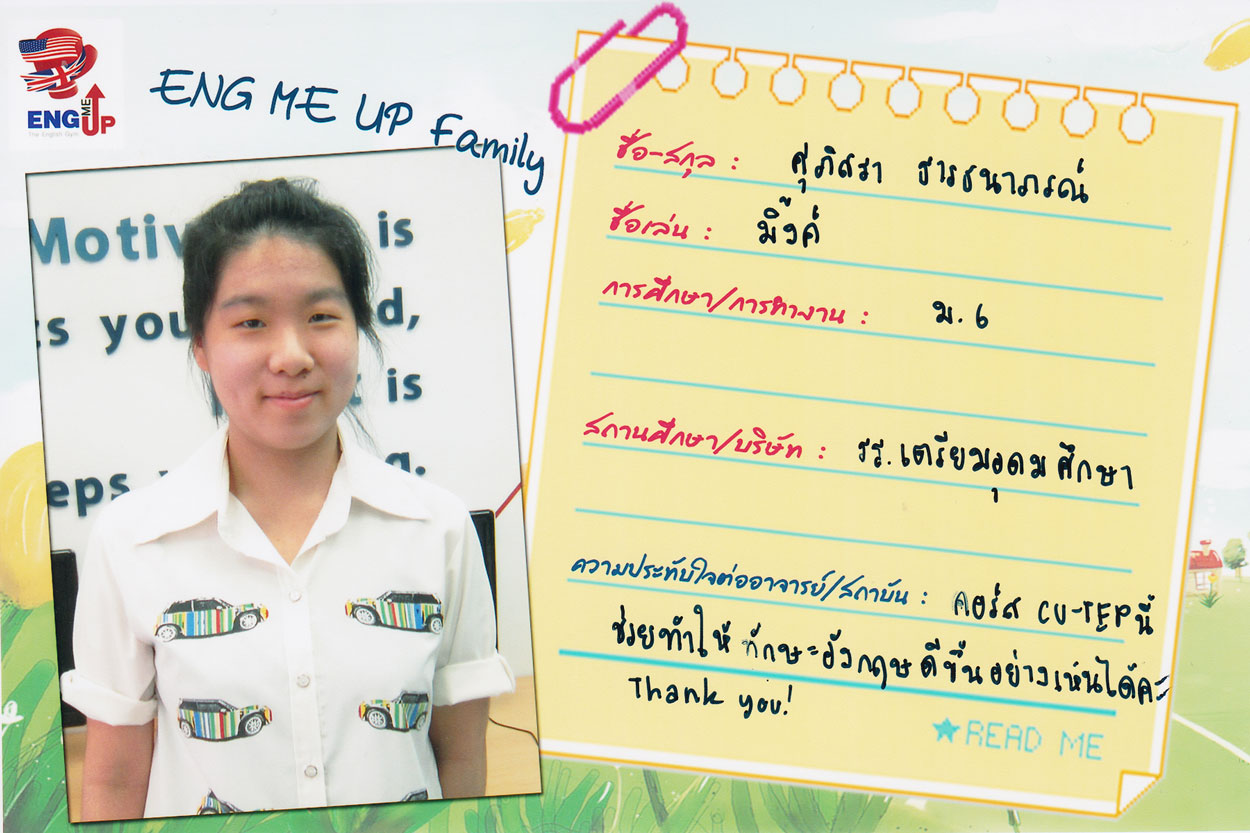 ENG ME UP
The English Gym
ENG ME UP Family
Motiv is
ts you d,
t is
eps g.
ชื่อ-สกุล : ศุภิสรา ธารธนาภรณ์
ชื่อเล่น : มิ้งค์
การศึกษา/การทำงาน : ม.6
สถานศึกษา/บริษัท : รร.เตรียมอุดมศึกษา
ความประทับใจต่ออาจารย์/สถาบัน : คอร์ส CU-TEP นี้
ช่วยทำให้ทักษะอังกฤษดีขึ้นอย่างเห็นได้ค่ะ
Thank you!
READ ME